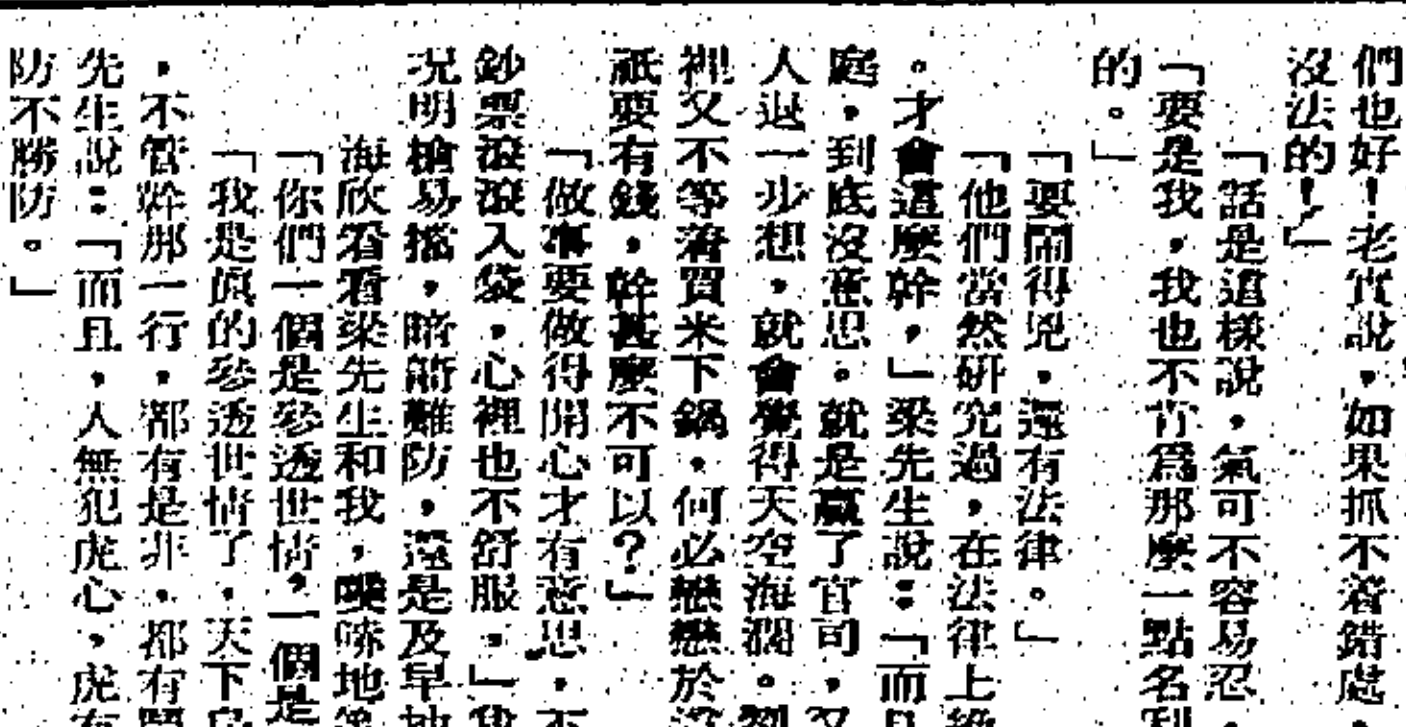 們也好！老實說，如果抓不着錯處，
沒法的！」
「話是這樣說，氣可不容易忍，
「要是我，我也不肯爲那麼一點名利
的。」
「要鬧得兇，還有法律。」
「他們當然研究過，在法律上絕
。才會這麼幹，」梁先生說：「而且
庭，到底沒意思。就是贏了官司，又
人退一步想，就會覺得天空海濶。劉
裡又不等著買米下鍋，何必戀戀於沒
祇要有錢，幹甚麼不可以？」
「做事要做得開心才有意思，不
鈔票滾滾入袋，心裡也不舒服。」我
况明槍易擋，暗箭難防，還是及早抽
海欣看看梁先生和我，噗嗤地笑
「你們一個是參透世情，一個是
「我是眞的參透世情了，天下烏
，不管幹那一行，都有是非，都有鬪
先生說：「而且，人無犯虎心，虎有
防不勝防。」